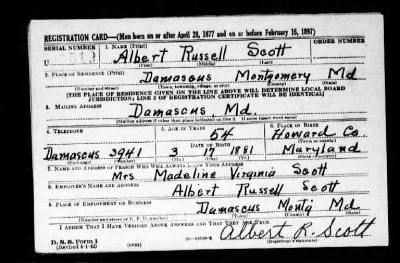 REGISTRATION CARD—(Men born on or after April 28, 1877 and on or before February 16, 1897)
SERIAL NUMBER 1. NAME (Print) ORDER NUMBER
U Albert Russell Scott
(First) (Middle) (Last)
2. PLACE OF RESIDENCE (Print)
Damascus Montgomery Md
(Number and street) (Town, township, village, or city) (County) (State)
[THE PLACE OF RESIDENCE GIVEN ON THE LINE ABOVE WILL DETERMINE LOCAL BOARD
JURISDICTION; LINE 2 OF REGISTRATION CERTIFICATE WILL BE IDENTICAL]
3. MAILING ADDRESS
Damascus Md.
[Mailing address if other than place indicated on line 2. If same insert word same]
4. TELEPHONE 5. AGE IN YEARS 6. PLACE OF BIRTH
54 Howard Co
DATE OF BIRTH (Town or county)
Damascus 3941 3 17 1881 Maryland
(Exchange) (Number) (Mo.) (Day) (Yr.) (State or country)
7. NAME AND ADDRESS OF PERSON WHO WILL ALWAYS KNOW YOUR ADDRESS
Mrs Madeline Virginia Scott
8. EMPLOYER'S NAME AND ADDRESS
Albert Russell Scott
9. PLACE OF EMPLOYMENT OR BUSINESS
Damascus Montg Md
(Number and street or R. F. D. number) (Town) (County) (State)
I AFFIRM THAT I HAVE VERIFIED ABOVE ANSWERS AND THAT THEY ARE TRUE.
D. S. S. Form 1
(Revised 4-1-42) (over) Albert R. Scott
(Registrant's signature)